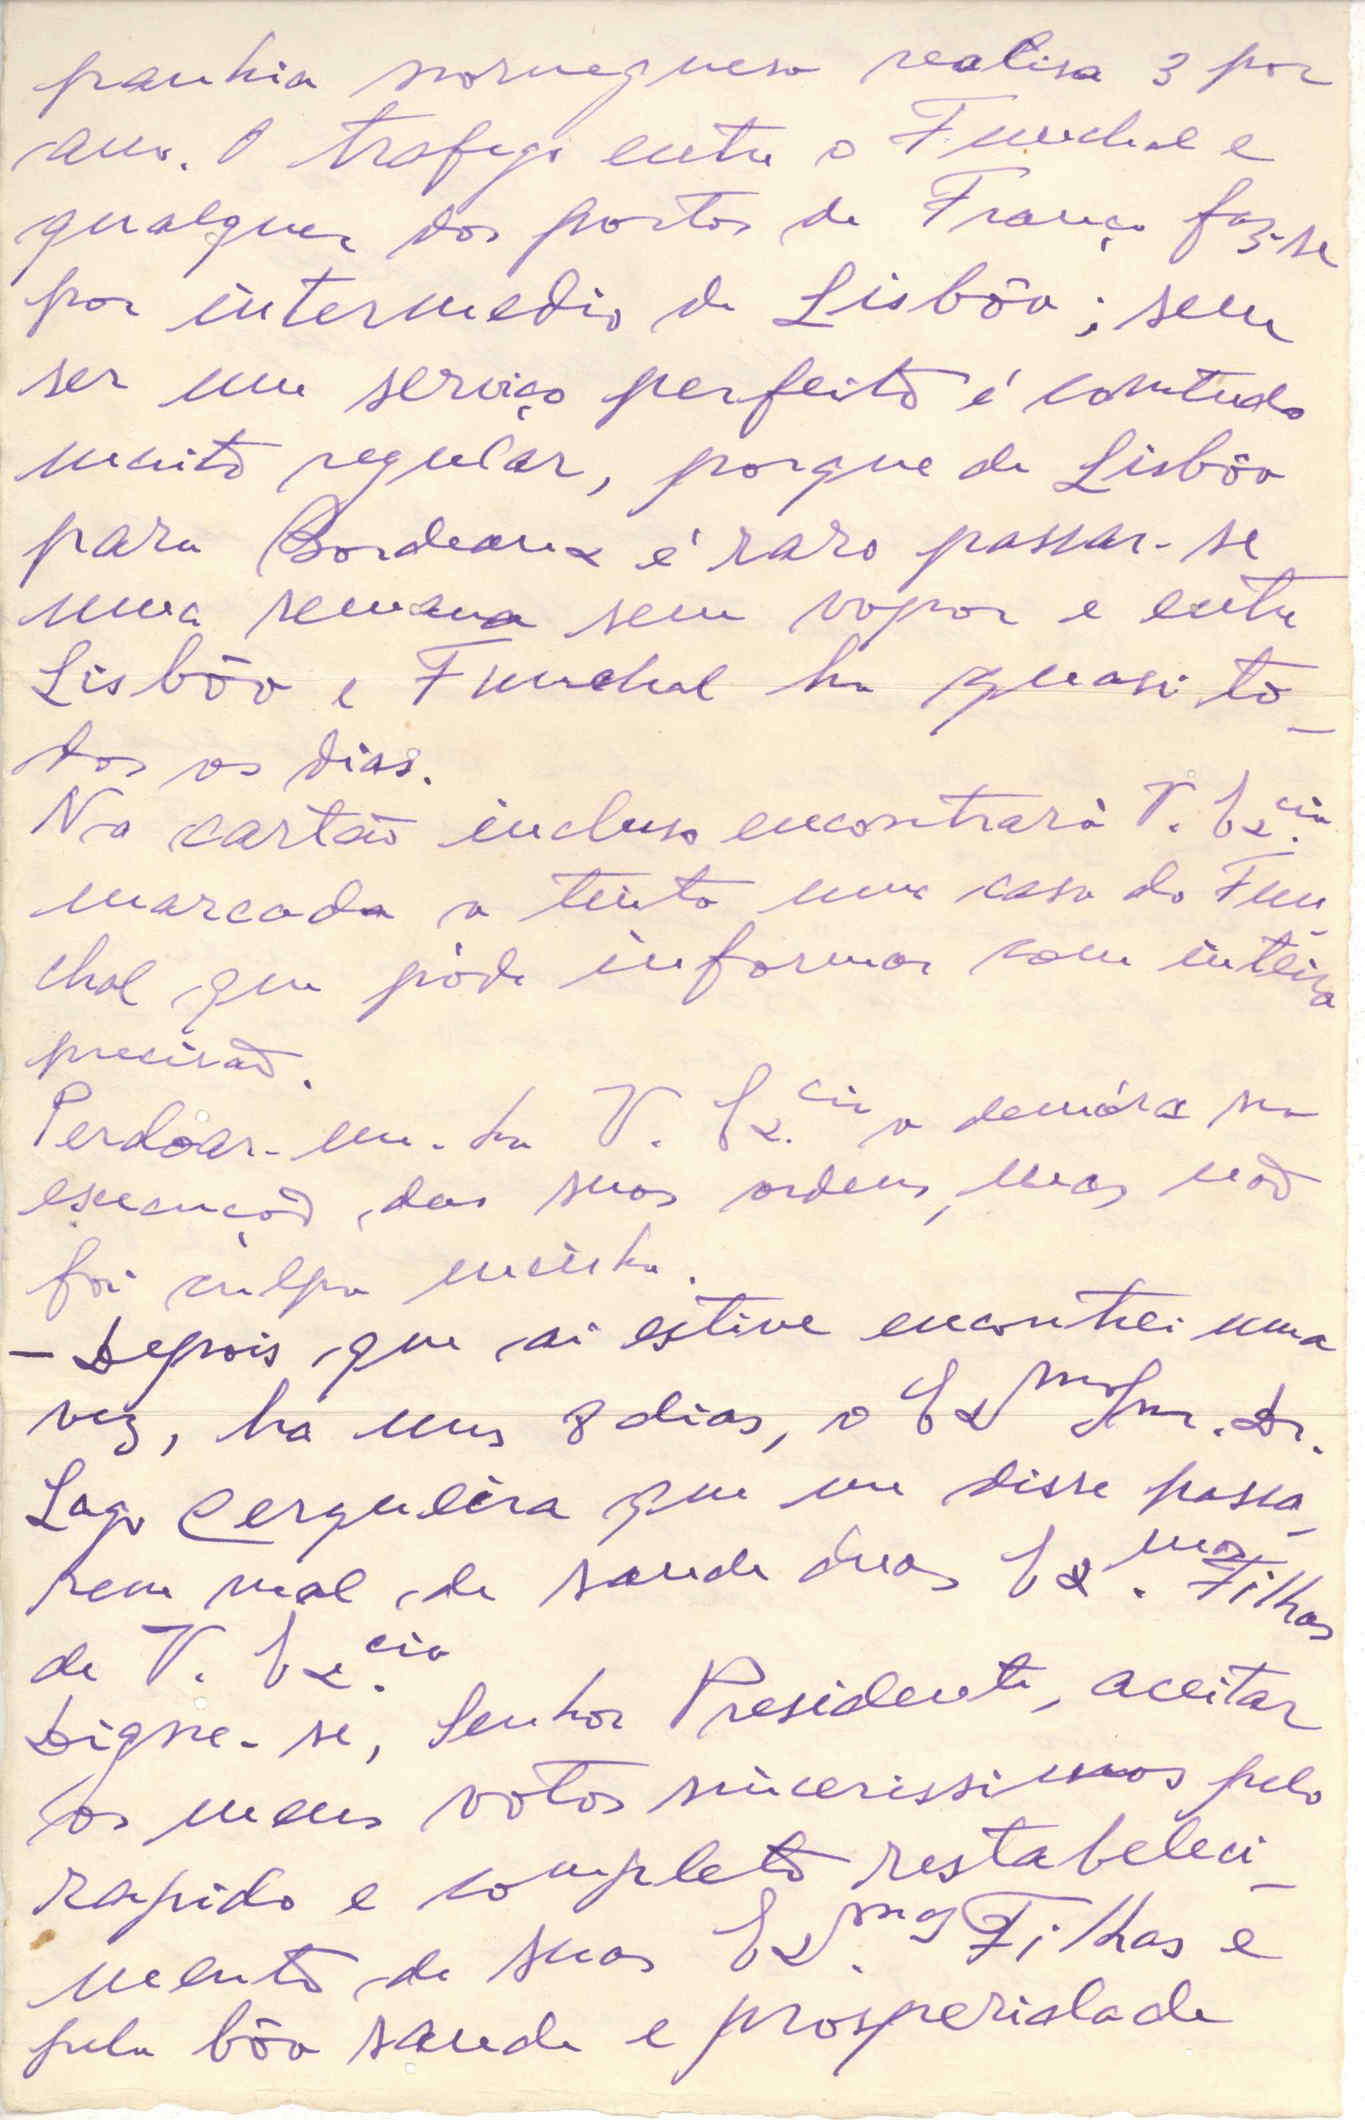 panhia norueguesa realisa 3 por
ano. O trafego entre o Funchal e
qualquer dos portos de França faz-se
por intermedio de Lisbôa; sem
ser um serviço perfeito é comtudo
muito regular, porque de Lisbôa
para Bordeaux é raro passar-se
uma semana sem vapor e entre
Lisbôa e Funchal ha quasi to-
dos os dias.
No cartão incluso encontrará V. Ex.cia
marcada a tinta uma casa do Fun-
chal que póde informar com inteira
precisão.
Perdoar-me-ha V. Ex.cia a demóra na
execução das suas ordens, mas não
foi culpa minha.
- Depois que ai estive encontrei uma
vez, ha uns 8 dias, o Exmo Snr. Dr.
Lago Cerqueira que me disse passa-
rem mal de saude duas Ex.mas Filhas
de V. Ex.cia
Digne-se, Senhor Presidente, aceitar
os meus votos sincerissimos pelo
rapido e completo restabeleci-
mento de suas Ex.mas Filhas e
pela bôa saude e prosperidade